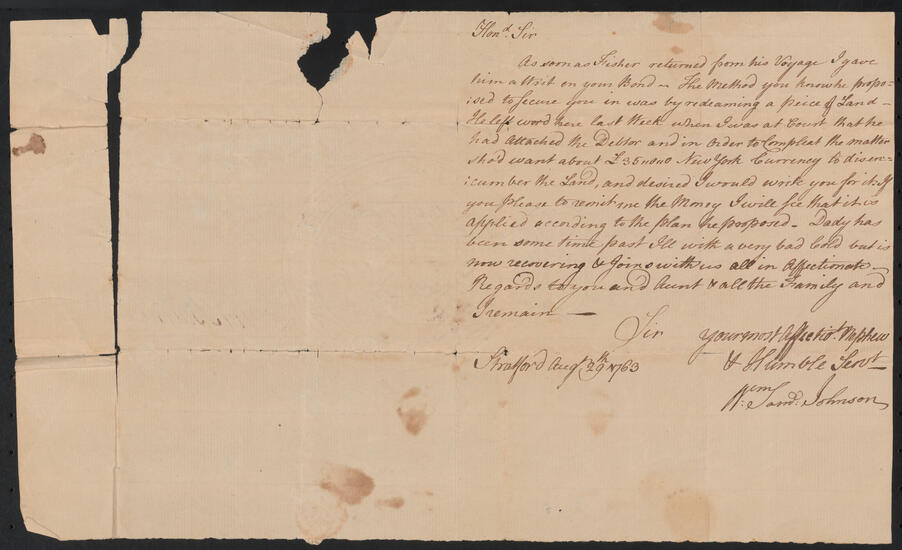 Hon.d Sir
As soon as Fisher returned from his Voyage I gave
him a Writ on your Bond – The Method you know he propo-
ised to Secure you in was by redeaming a peice of Land –
He left word here last Week when I was at Court that he
had attached the Debtor and in order to Compleat the matter
shod want about £35"0"0 New York Currency to disen=
cumber the Land, and desired I would write you for it. If
you please to remit me the Money I will see that it is
applied according to the plan he proposed – Dady has
been some time past Ill with a very bad Cold but is
now recovering & Joins with us all in Affectionate
Regards to you and Aunt & all the Family and
I remain —
Sir your most Affectiot. Nephew
& Humble Servt
Stratford Aug.t 29th 1763
Wm: Saml: Johnson